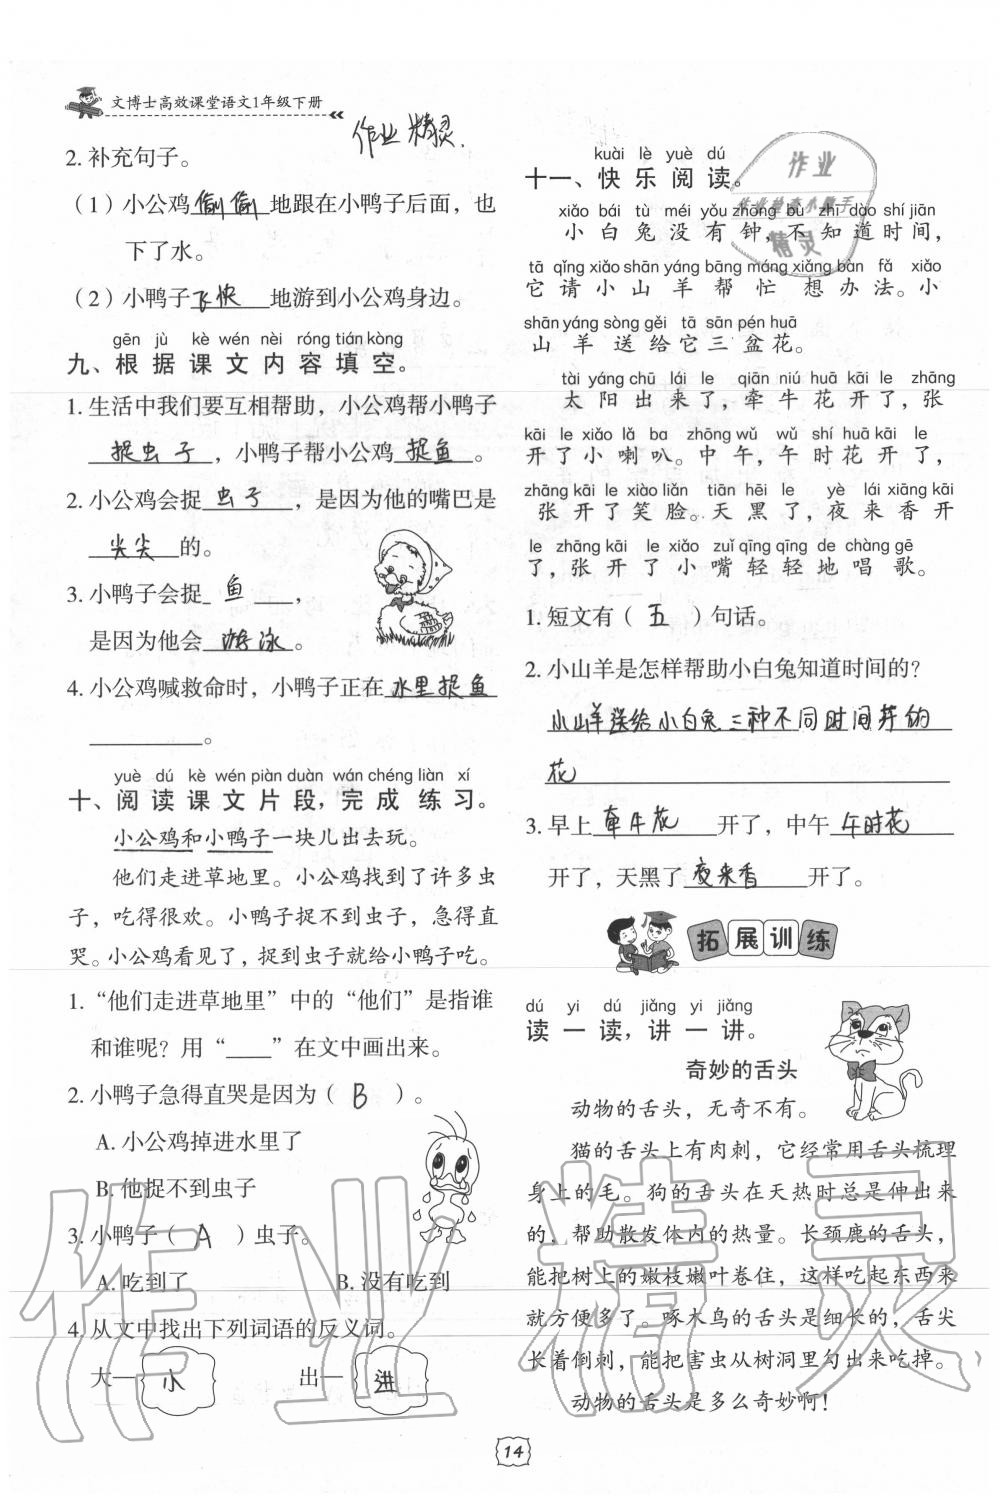 文博士高效课堂语文1年级下册
作业精灵.
2. 补充句子。
（1）小公鸡偷偷地跟在小鸭子后面，也
下了水。
（2）小鸭子飞快地游到小公鸡身边。
gēn jù kè wén nèi róng tián kòng
九、根据课文内容填空。
1. 生活中我们要互相帮助，小公鸡帮小鸭子
捉虫子，小鸭子帮小公鸡捉鱼。
2. 小公鸡会捉虫子，是因为他的嘴巴是
尖尖的。
3. 小鸭子会捉鱼，
是因为他会游泳。
4. 小公鸡喊救命时，小鸭子正在水里捉鱼
。
yuè dú kè wén piàn duàn wán chéng liàn xí
十、阅读课文片段，完成练习。
小公鸡和小鸭子一块儿出去玩。
他们走进草地里。小公鸡找到了许多虫
子，吃得很欢。小鸭子捉不到虫子，急得直
哭。小公鸡看见了，捉到虫子就给小鸭子吃。
1. “他们走进草地里”中的“他们”是指谁
和谁呢？用“____”在文中画出来。
2. 小鸭子急得直哭是因为（ B ）。
A. 小公鸡掉进水里了
B. 他捉不到虫子
3. 小鸭子（ A ）虫子。
A. 吃到了 B. 没有吃到
4. 从文中找出下列词语的反义词。
大—小 出—进
kuài lè yuè dú
十一、快乐阅读。
作业
作业检查小助手
精灵
xiǎo bái tù méi yǒu zhōng bù zhī dào shí jiān
小白兔没有钟，不知道时间，
tā qǐng xiǎo shān yáng bāng máng xiǎng bàn fǎ xiǎo
它请小山羊帮忙想办法。小
shān yáng sòng gěi tā sān pén huā
山羊送给它三盆花。
tài yáng chū lái le qiān niú huā kāi le zhāng
太阳出来了，牵牛花开了，张
kāi le xiǎo lǎ ba zhōng wǔ wǔ shí huā kāi le
开了小喇叭。中午，午时花开了，
zhāng kāi le xiào liǎn tiān hēi le yè lái xiāng kāi
张开了笑脸。天黑了，夜来香开
le zhāng kāi le xiǎo zuǐ qīng qīng de chàng gē
了，张开了小嘴轻轻地唱歌。
1. 短文有（ 五 ）句话。
2. 小山羊是怎样帮助小白兔知道时间的？
小山羊送给小白兔三种不同时间开的
花
3. 早上牵牛花开了，中午午时花
开了，天黑了夜来香开了。
拓展训练
dú yi dú jiǎng yi jiǎng
读一读，讲一讲。
奇妙的舌头
动物的舌头，无奇不有。
猫的舌头上有肉刺，它经常用舌头梳理
身上的毛。狗的舌头在天热时总是伸出来
的，帮助散发体内的热量。长颈鹿的舌头，
能把树上的嫩枝嫩叶卷住，这样吃起东西来
就方便多了。啄木鸟的舌头是细长的，舌尖
长着倒刺，能把害虫从树洞里勾出来吃掉。
动物的舌头是多么奇妙啊！
作业精灵
14